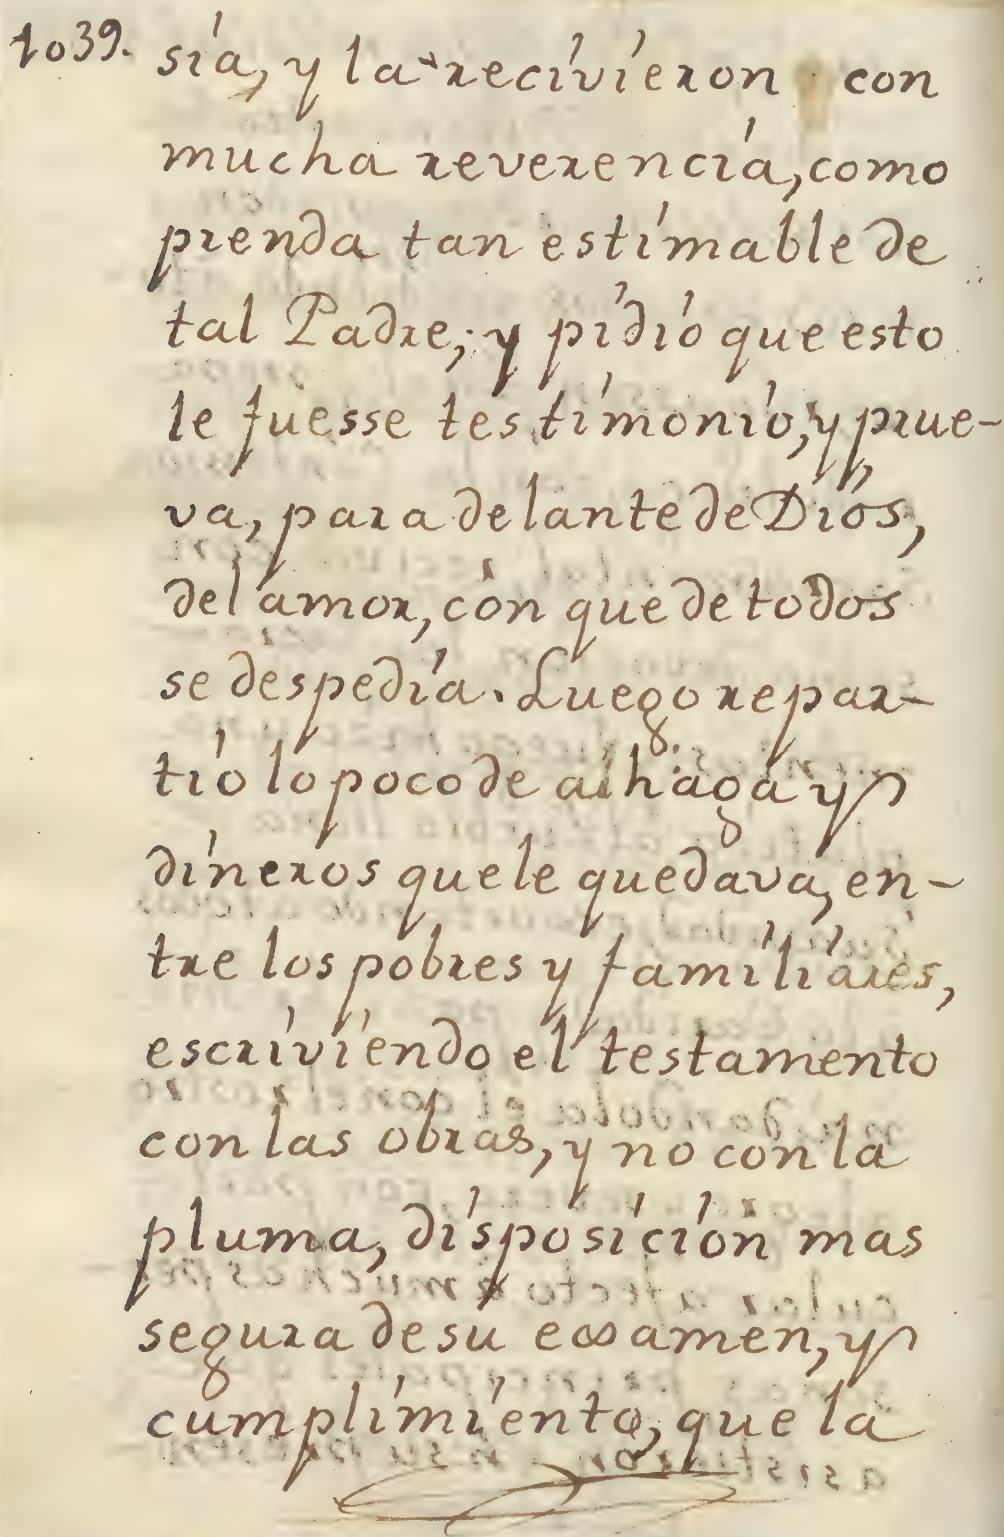 1039. sia, y la recivieron con
mucha reverencia, como
prenda tan estimable de
tal Padre; y pidió que esto
le fuesse testimonio, y prue-
va, para delante de Dios,
del amor, con que de todos
se despedia. Luego repar-
tio lo poco de alhaga y
dineros que le quedava, en-
tre los pobres y familiares,
escriviendo el testamento
con las obras, y no con la
pluma, disposicion mas
segura de su examen, y
cumplimiento, que la